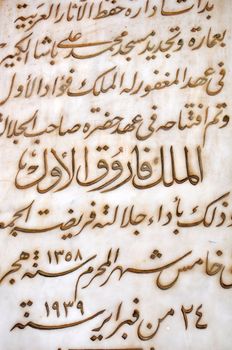 بدأت إدارة حفظ الآثار العربية
بعمارة وتجديد مسجد محمد علي باشا الكبير
في عهد المغفور له الملك فؤاد الأول
وتم افتتاحه في عهد حضرة صاحب الجلالة
الملك فاروق الأول
وذلك بأداء جلالته فريضة الجمعة
في خامس شهر المحرم سنة ١٣٥٨ هجرية
٢٤ من فبراير سنة ١٩٣٩